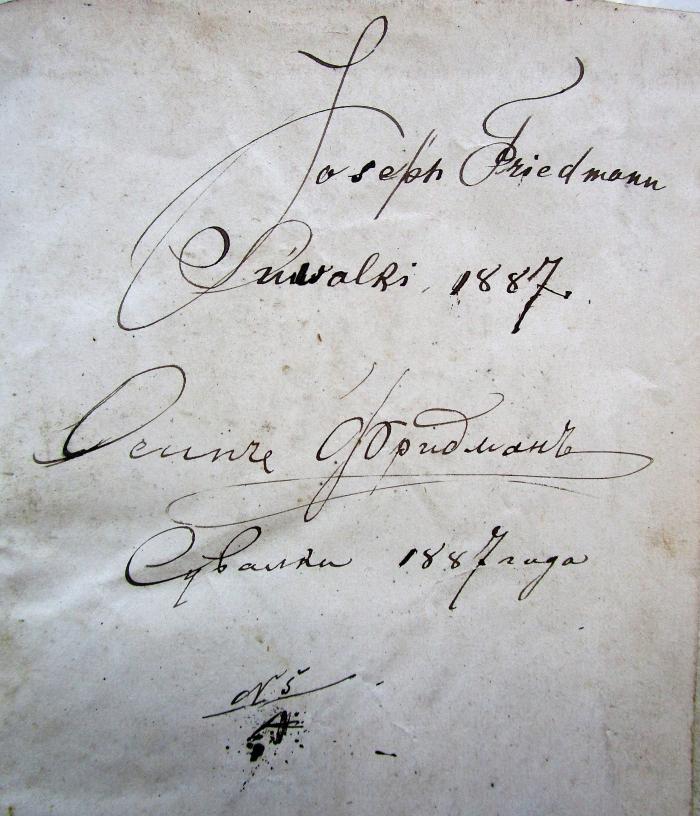 Joseph Friedmann
Suwalki 1887.
Осипъ Фридманъ
Сувалки 1887 года
N 5